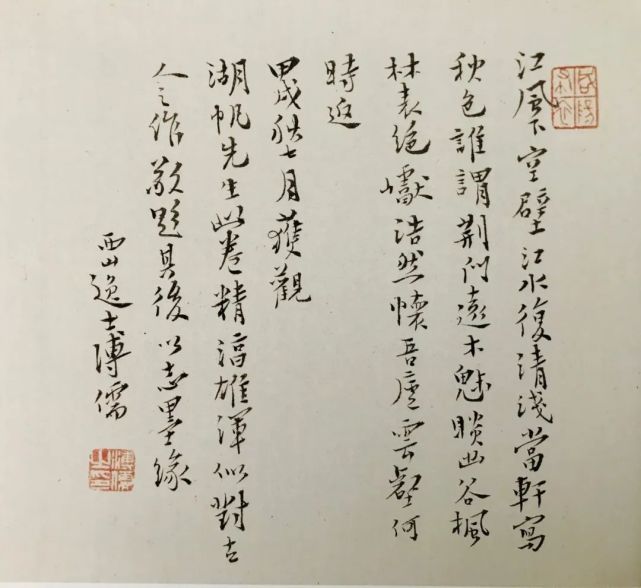 江風下空壁江水復清淺當軒寫
秋色誰謂荊門遠木魅睒幽谷楓
林表絕巘浩然懷吾廬雲壑何
時返
甲戌秋七月獲觀
湖帆先生此卷精深雄渾似對古
人之作敬題其後以志墨緣
西山逸士溥儒